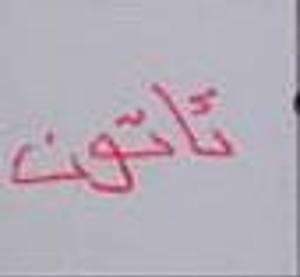 تأتون